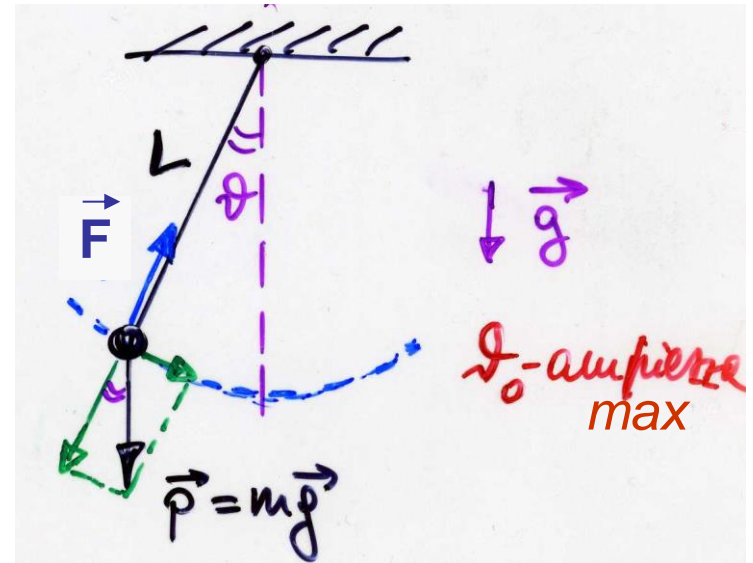 L
ϑ
F
g
ϑ₀ - ampiezza
max
p = mg